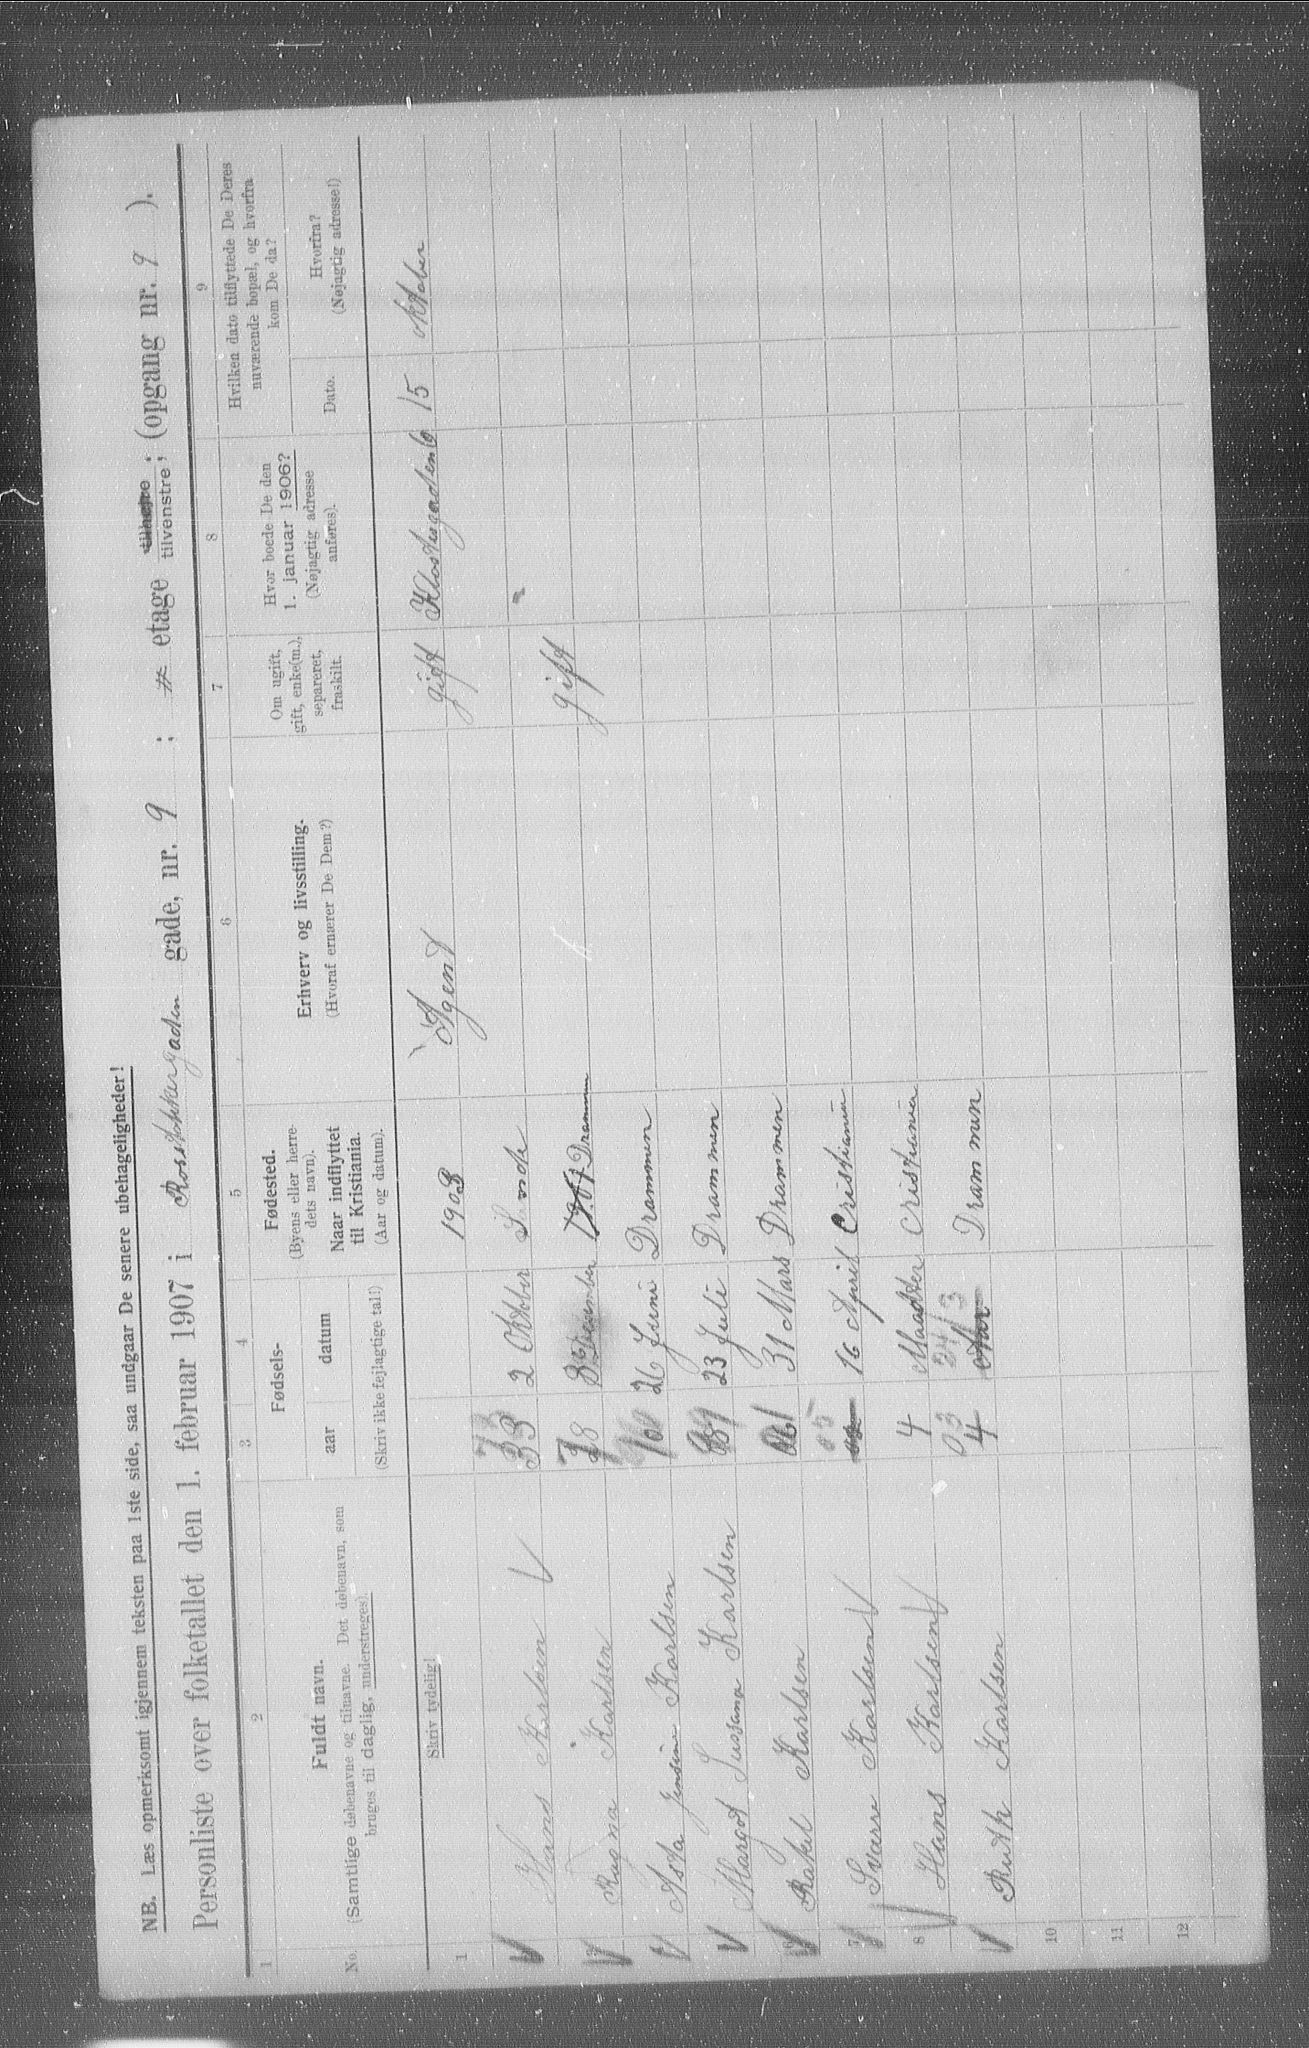 NB. Læs opmerksomt igjennem teksten paa 1ste side, saa undgaar De senere ubehageligheder!
Personliste over folketallet den 1. februar 1907 i gade, nr. 9 ; etage tilhøjre tilvenstre; (opgang nr. 9 ).
1 2 3 4 5 6 7 8 9
No.
Fuldt navn.
(Samtlige døbenavne og tilnavne. Det døbenavn, som
bruges til daglig, understreges).
Fødsels-
aar datum
(Skriv ikke fejlagtige tal!)
Fødested.
(Byens eller herre-
dets navn).
Naar indflyttet
til Kristiania.
(Aar og datum).
Erhverv og livsstilling.
(Hvoraf ernærer De Dem?)
Om ugift,
gift, enke(m.),
separeret,
fraskilt.
Hvor boede De den
1. januar 1906?
(Nøjagtig adresse
anføres).
Hvilken dato tilflyttede De Deres
nuværende bopæl, og hvorfra
kom De da?
Dato.
Hvorfra?
(Nøjagtig adresse!)
Skriv tydelig!
1 1903 Agent gift Klostergaden 6 15 oktober
Hans Karlsen 33 2 Oktober
Ragna Karlsen 78 Drammen gift
Asta Karlsen 26 Juni Drammen
Margot Sussana Karlsen 23 Juli Drammen
Rakel Karlsen 31 Mars Drammen
7 Sværre Karlsen 05 16 April Cristiania
8 Hans Karlsen 4 Cristiania
Ruth Karlsen 03 4 24/3 Aar Drammen
10
11
12